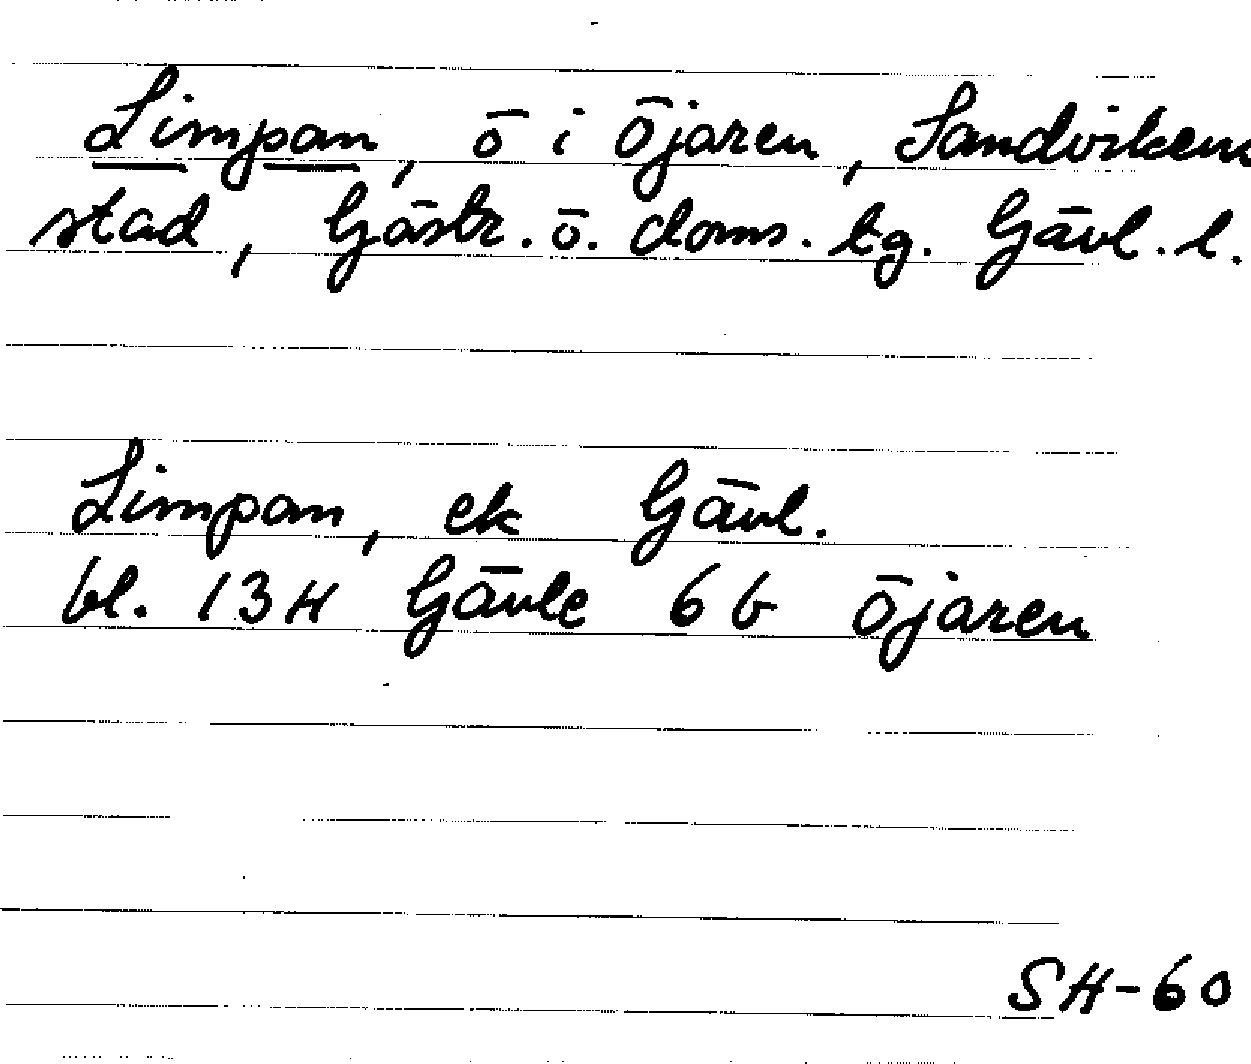 Limpan, ö i Öjaren, Sandvikens
stad, Gästr. ö. doms. tg. Gävl. l.
Limpan, ek Gävl.
bl. 13H Gävle 6b Öjaren
SH-60